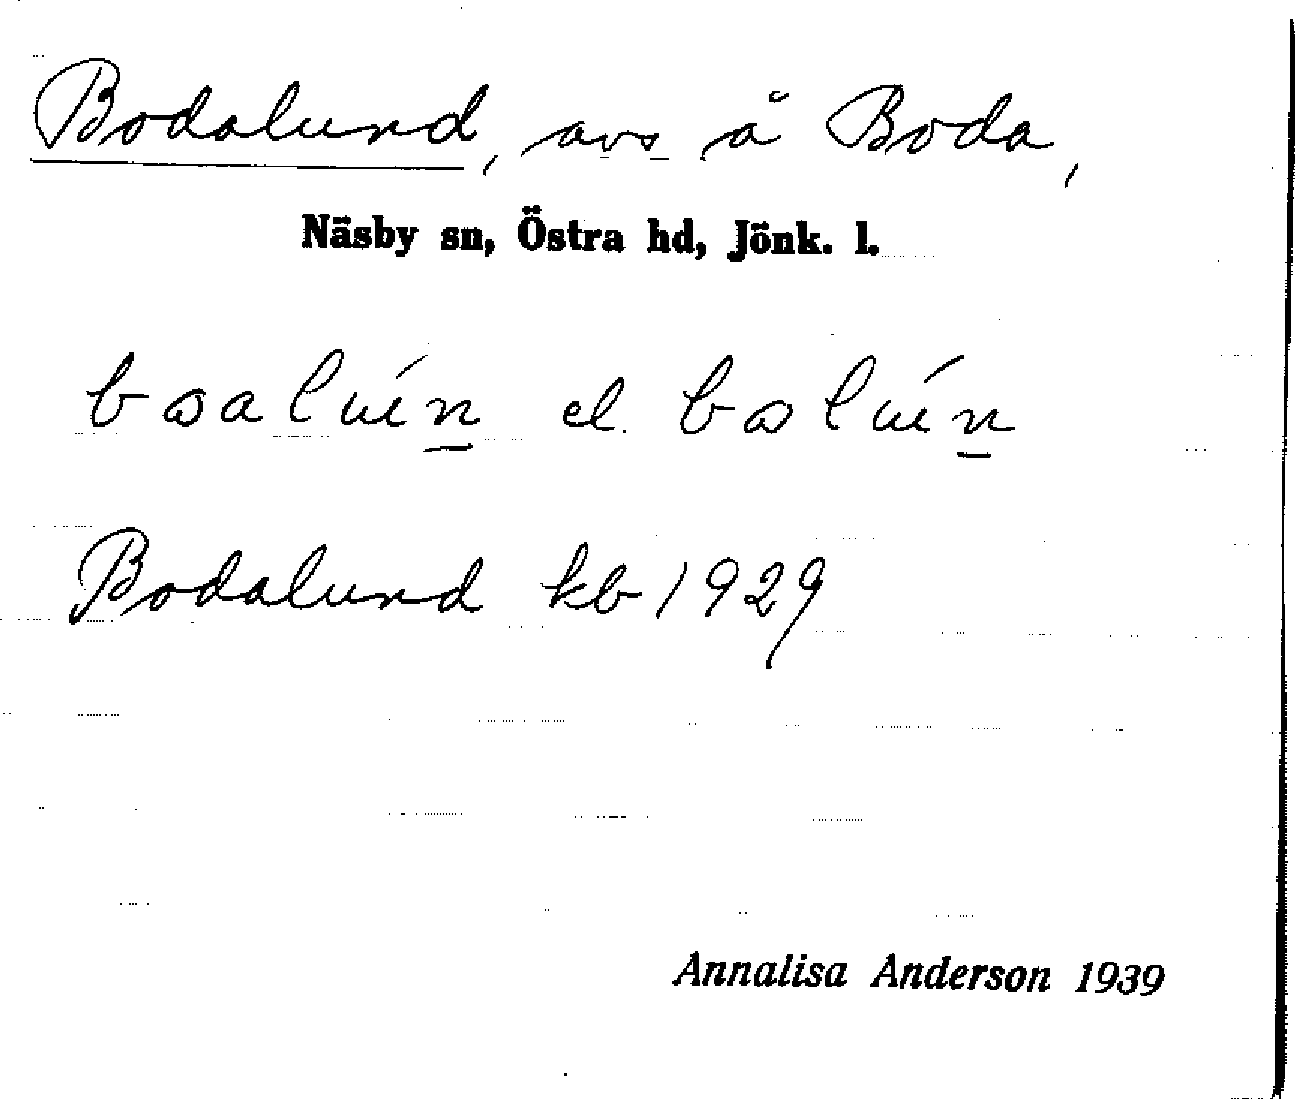 Bodalund, avs å Boda,
Näsby sn, Östra hd, Jönk. l.
el.
Bodalund kb 1929
Annalisa Anderson 1939